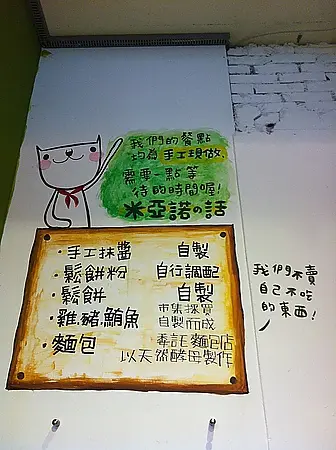 我們的餐點
均為手工現做,
需要一點等
待的時間喔!
米亞諾の話
・手工抹醬 自製
・鬆餅粉 自行調配
・鬆餅 自製
・雞.豬.鮪魚 市集採買
自製而成
・麵包 委託麵包店
以天然酵母製作
我們不賣
自己不吃
的東西!